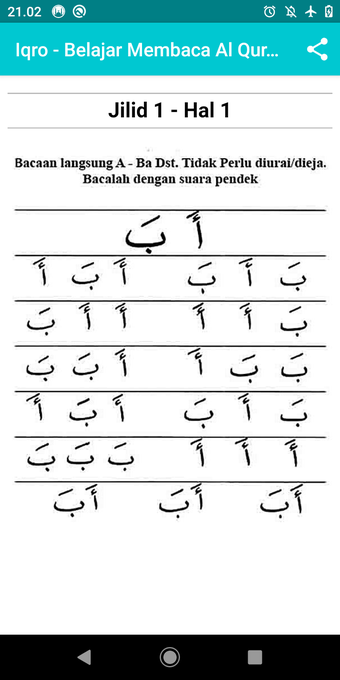 21.02
Iqro - Belajar Membaca Al Qur...
Jilid 1 - Hal 1
Bacaan langsung A - Ba Dst. Tidak Perlu diurai/dieja.
Bacalah dengan suara pendek
أَ بَ
بَ أَ بَ أَ بَ أَ
بَ أَ أَ أَ أَ بَ
بَ بَ أَ أَ بَ بَ
بَ أَ بَ أَ بَ أَ
أَ أَ أَ بَ بَ بَ
أَبَ أَبَ أَبَ